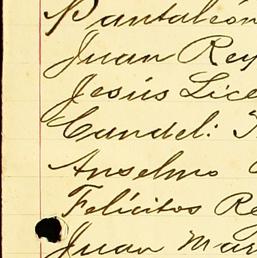 Pantaleón
Juan Rey
Jesús Lice
Candel:
Anselmo
Felícitos Re
Juan Mar